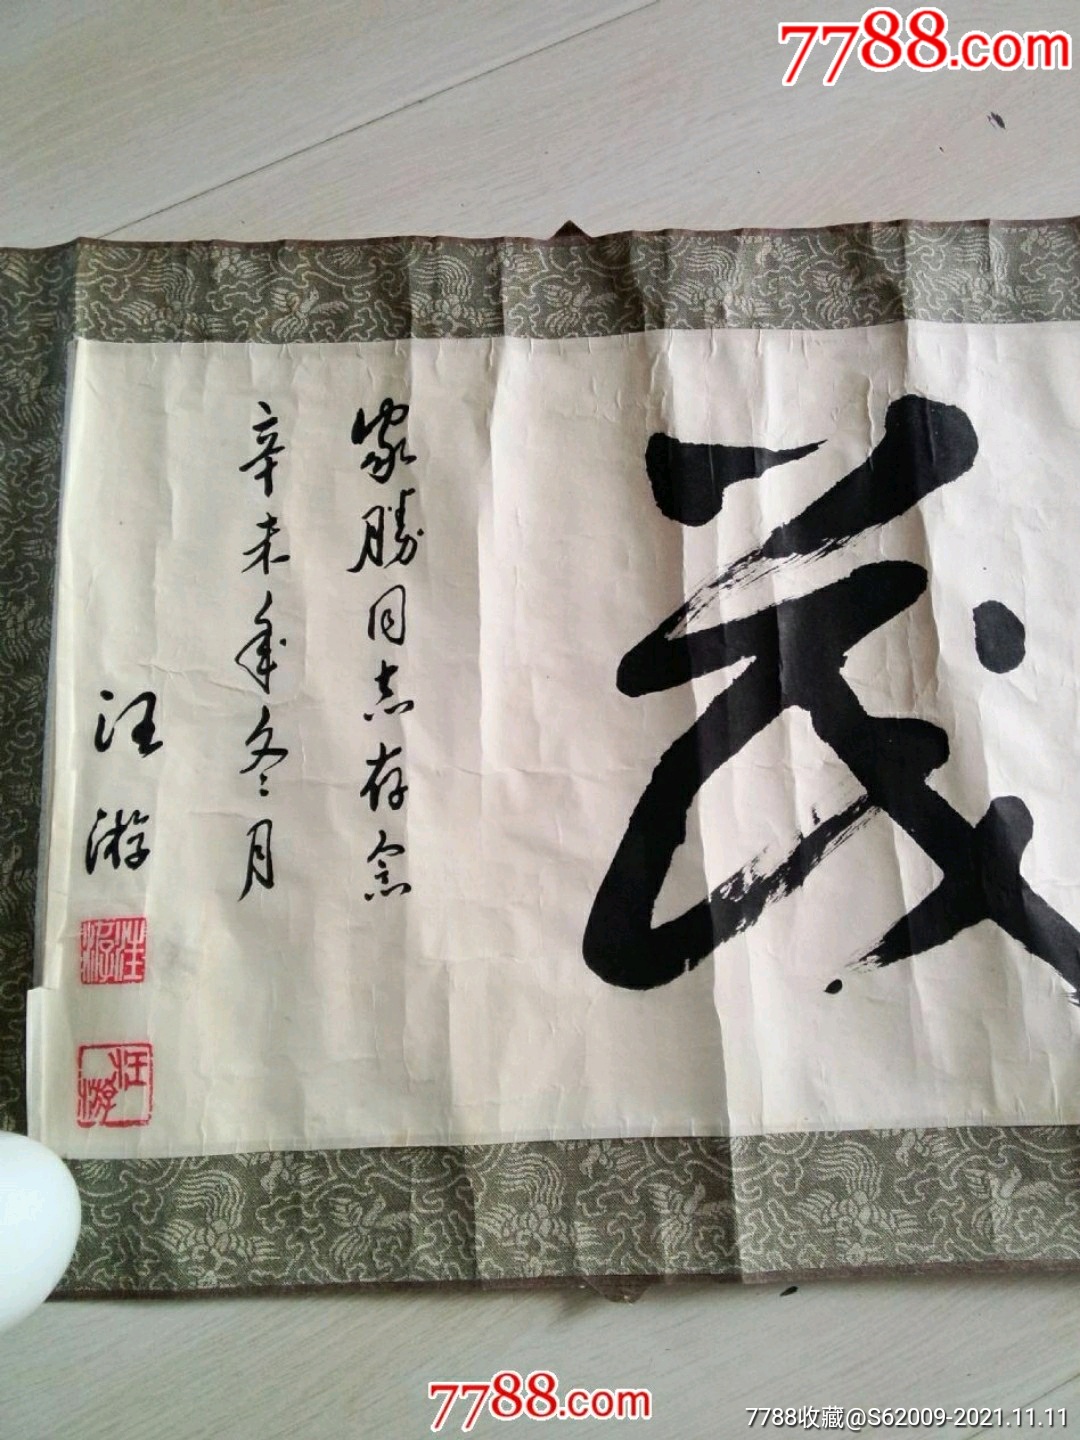 7788.com
茂
家勝同志存念
辛未年冬月
汪游
汪游
汪游
7788.com
7788收藏@S62009-2021.11.11